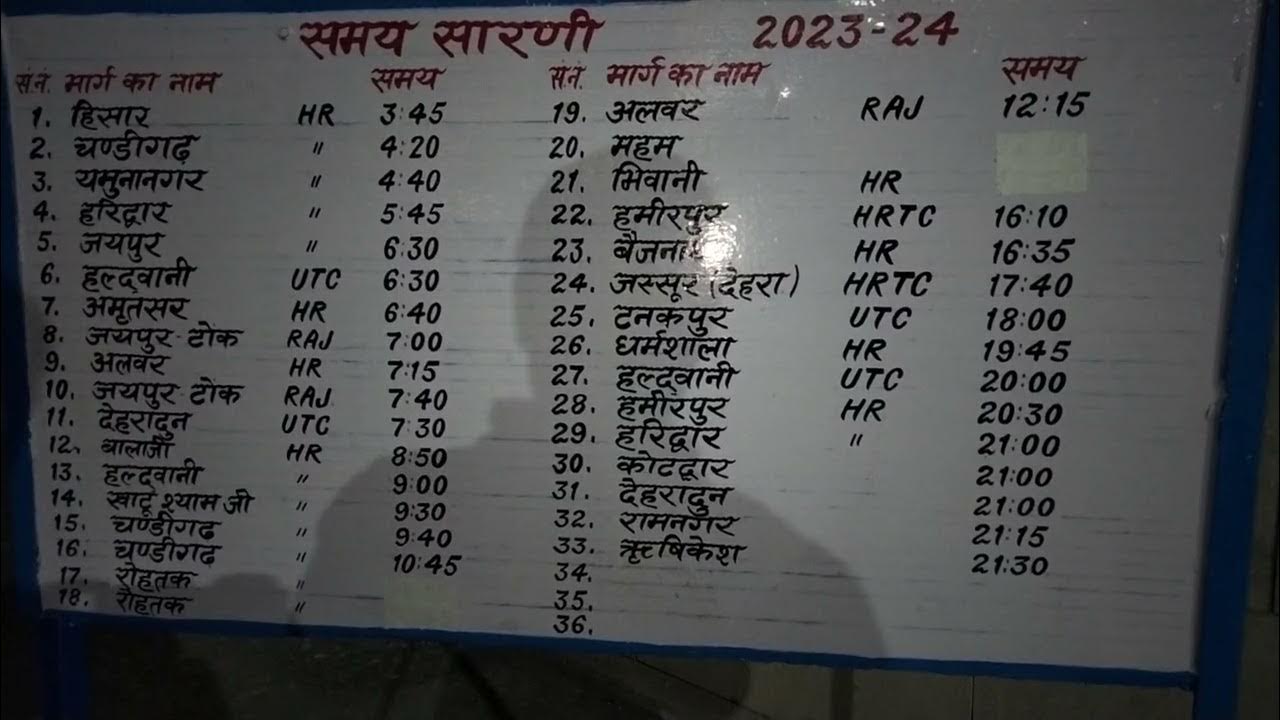 समय सारणी 2023-24
सं.नं. मार्ग का नाम समय
1. हिसार HR 3:45
2. चण्डीगढ़ " 4:20
3. यमुनानगर " 4:40
4. हरिद्वार " 5:45
5. जयपुर " 6:30
6. हल्द्वानी UTC 6:30
7. अमृतसर HR 6:40
8. जयपुर-टोंक RAJ 7:00
9. अलवर HR 7:15
10. जयपुर-टोंक RAJ. 7:40
11. देहरादुन UTC 7:30
12. बालाजी HR 8:50
13. हल्द्वानी " 9:00
14. खाटू श्याम जी " 9:30
15. चण्डीगढ " 9:40
16. चण्डीगढ " 10:45
17. रोहतक "
18. रोहतक "
सं.नं. मार्ग का नाम समय
19. अलवर RAJ 12:15
20. महम
21. भिवानी HR
22. हमीरपुर HRTC 16:10
23. HR 16:35
24. जस्सूर (देहरा) HRTC 17:40
25. टनकपुर UTC 18:00
26. धर्मशाला HR 19:45
27. हल्द्वानी UTC 20:00
28. हमीरपुर HR 20:30
29. हरिद्वार " 21:00
30. कोटद्वार 21:00
31. देहरादुन 21:00
32. रामनगर 21:15
33. ऋषिकेश 21:30
34.
35.
36.